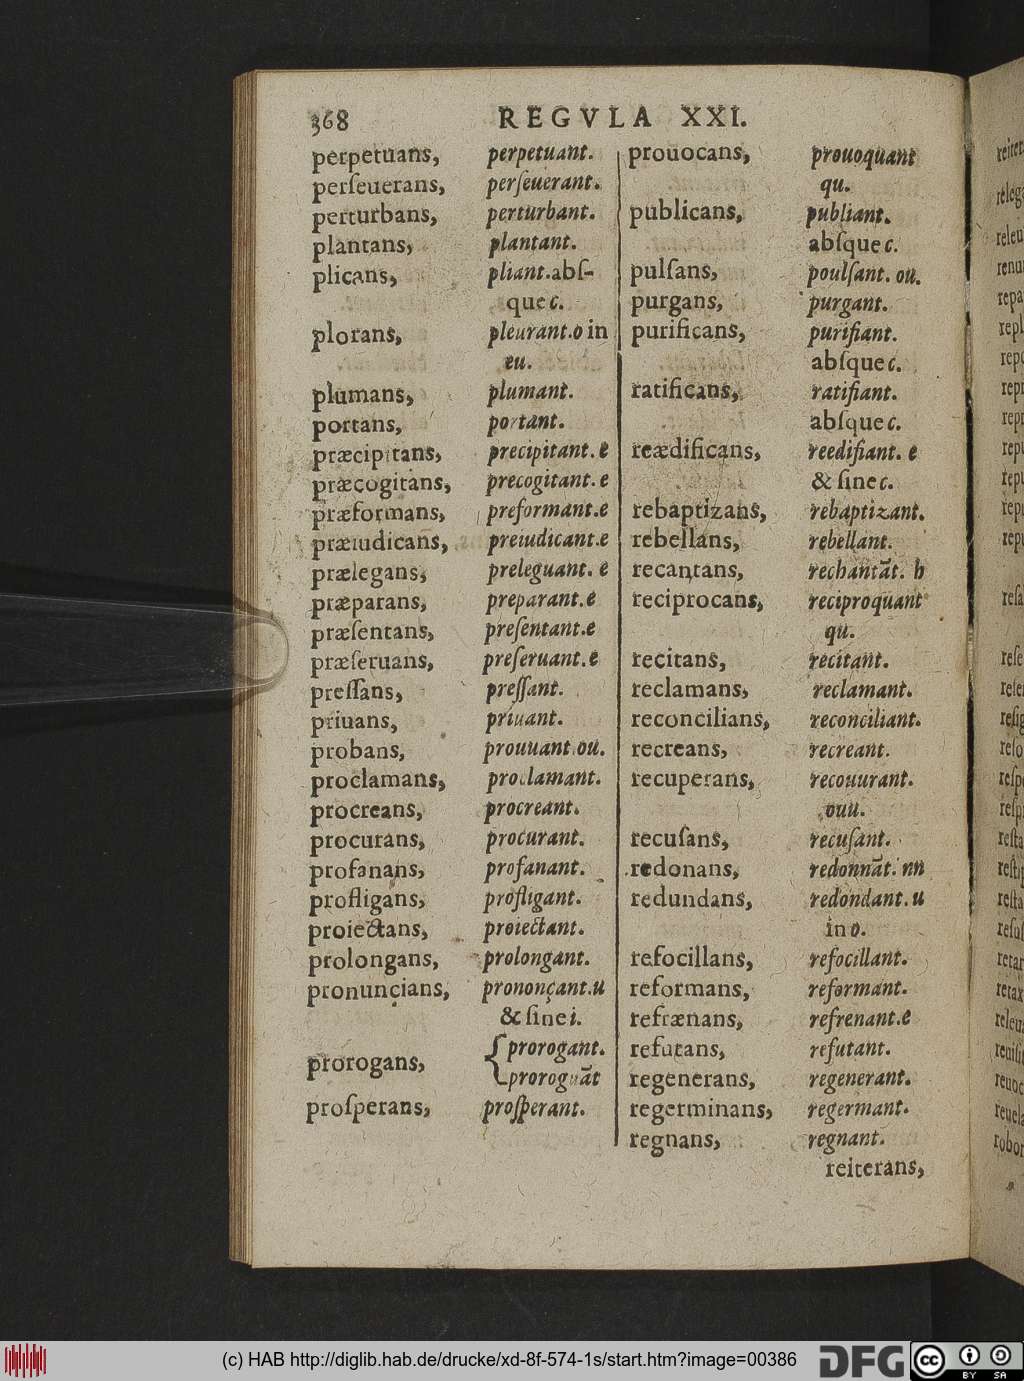 368 REGVLA XXI.
perpetuans, perpetuant.
perſeuerans, perſeuerant.
perturbans, perturbant.
plantans, plantant.
plicans, pliant.abſ-
que c.
plorans, pleurant.o in
eu.
plumans, plumant.
portans, portant.
præcipitans, precipitant. e
præcogitans, precogitant. e
præformans, preformant.e
præiudicans, preiudicant.e
prælegans, preleguant. e
præparans, preparant.e
præſentans, preſentant.e
præſeruans, preſeruant.e
preſſans, preſſant.
priuans, priuant.
probans, prouuant.ou.
proclamans, proclamant.
procreans, procreant.
procurans, procurant.
profanans, profanant.
profligans, profligant.
proiectans, proiectant.
prolongans, prolongant.
pronunçians, prononçant.u
& ſine i.
prorogans, { prorogant.
proroguāt
proſperans, proſperant.
prouocans, prouoquant
qu.
publicans, publiant.
abſque c.
pulſans, poulſant. ou.
purgans, purgant.
purificans, purifiant.
abſque c.
ratificans, ratifiant.
abſque c.
reædificans, reedifiant. e
& ſine c.
rebaptizans, rebaptizant.
rebellans, rebellant.
recantans, rechantāt. h
reciprocans, reciproquant
qu.
recitans, recitant.
reclamans, reclamant.
reconcilians, reconciliant.
recreans, recreant.
recuperans, recouurant.
ouu.
recuſans, recuſant.
redonans, redonnāt. nn
redundans, redondant. u
in o.
refocillans, refocillant.
reformans, reformant.
refrænans, refrenant.e
refutans, refutant.
regenerans, regenerant.
regerminans, regermant.
regnans, regnant.
reiterans,
(c) HAB http://diglib.hab.de/drucke/xd-8f-574-1s/start.htm?image=00386
DFG
cc BY SA